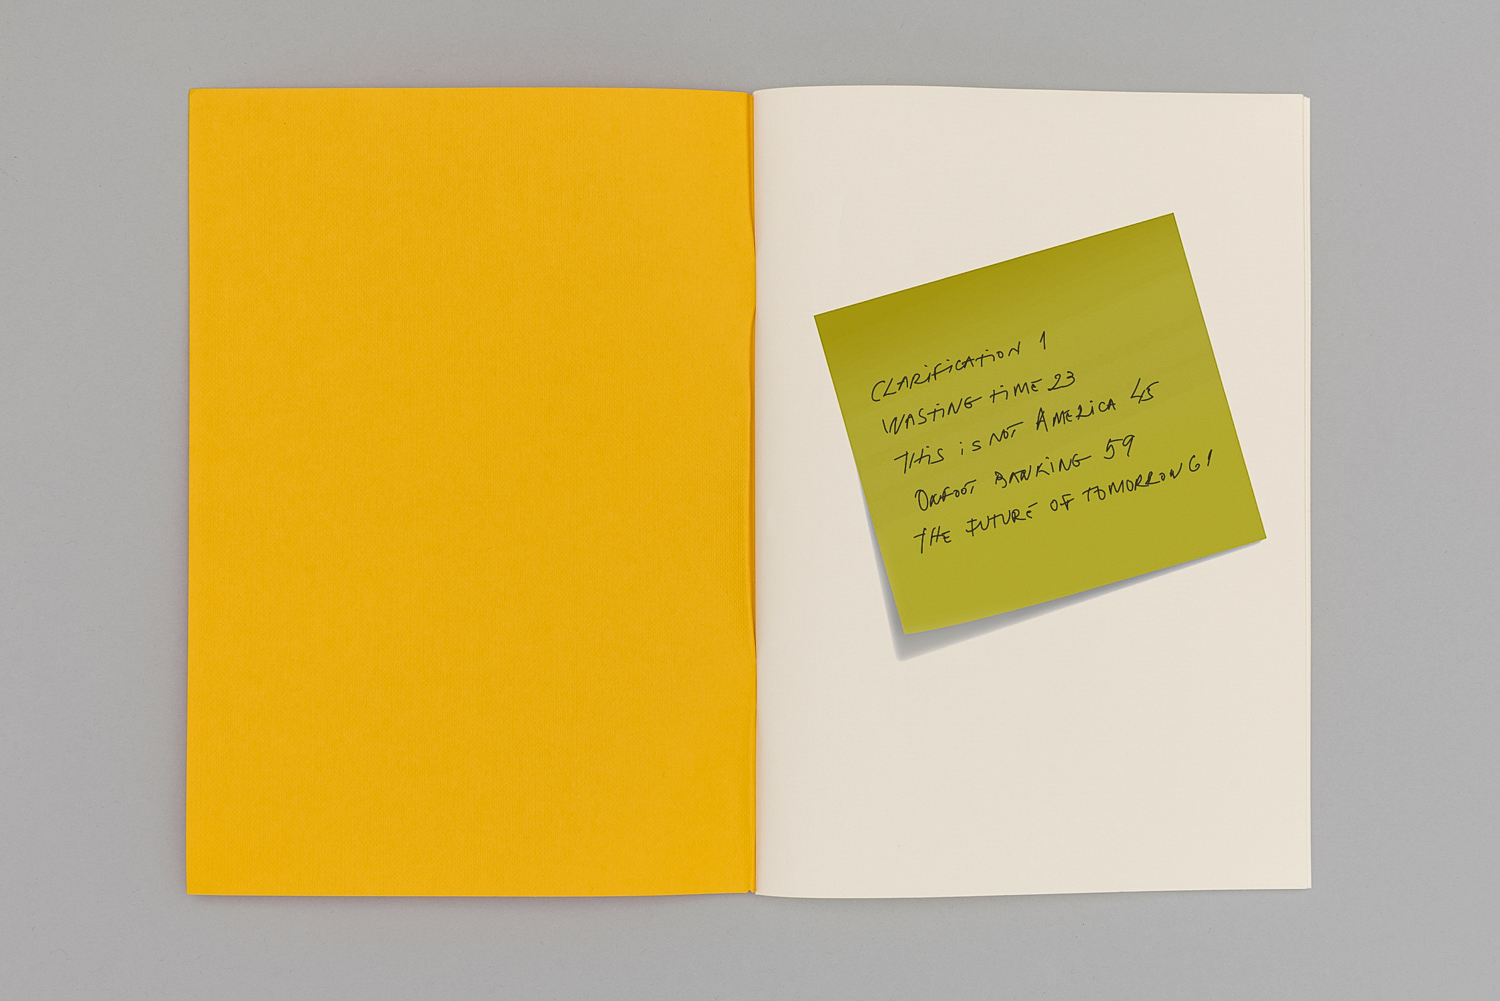 CLARiFiCATiON 1
WASTiNG TiME 23
THiS iS NOT AMERiCA 45
ONFOOT BANKiNG 59
THE FUTURE OF TOMORROW 61